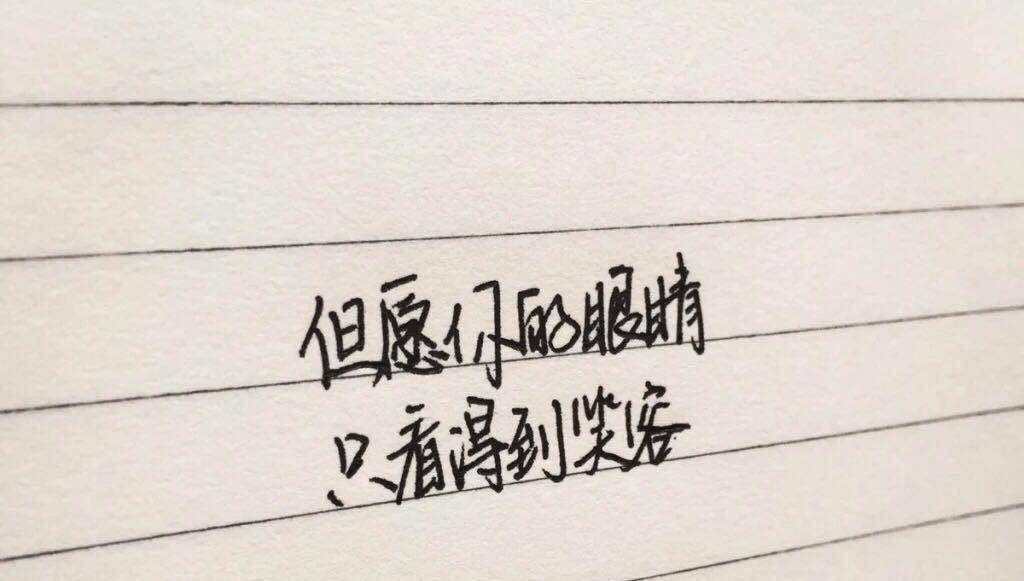 但愿你的眼睛
只看得到笑容